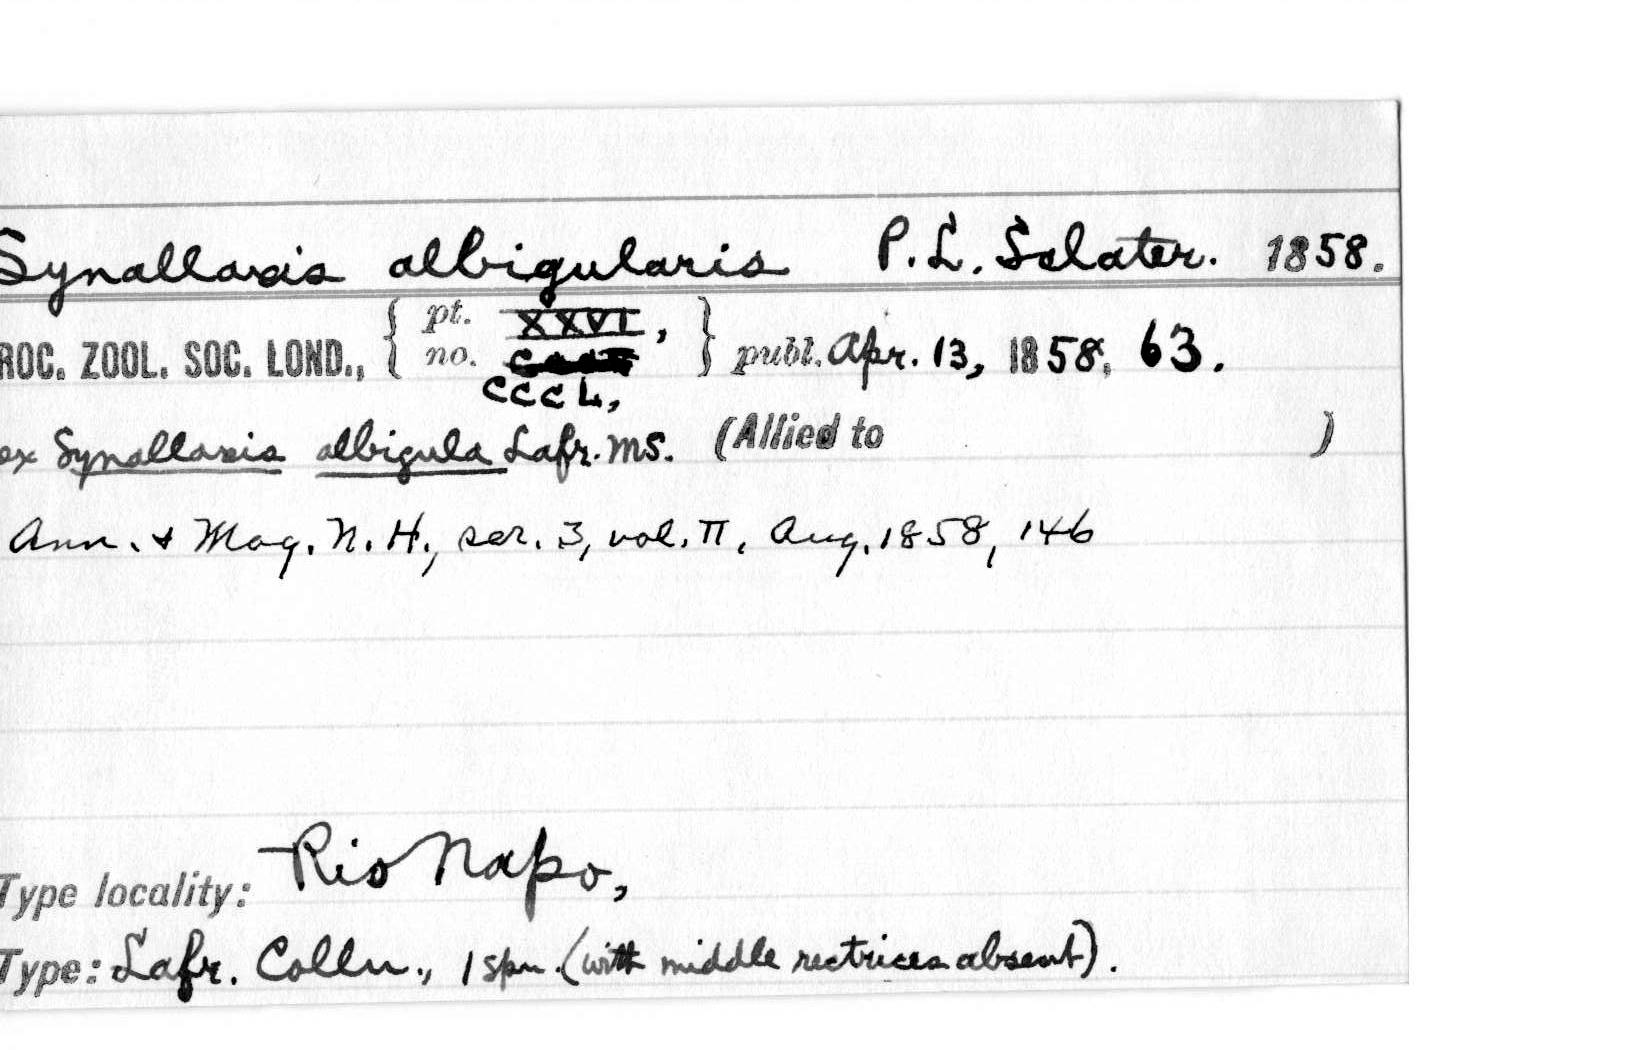 Synallaxis albigularis P. L. Sclater. 1858.
ROC. ZOOL. SOC. LOND., { pt. XXVI, no. CCCL, } publ. Apr. 13, 1858, 63.
ex Synallaxis albigula Lafr. MS. (Allied to )
Ann. & Mag. N. H., ser. 3, vol. II, Aug. 1858, 146
Type locality: Rio Napo,
Type: Lafr. Colln., 1 spn. (with middle rectrices absent).